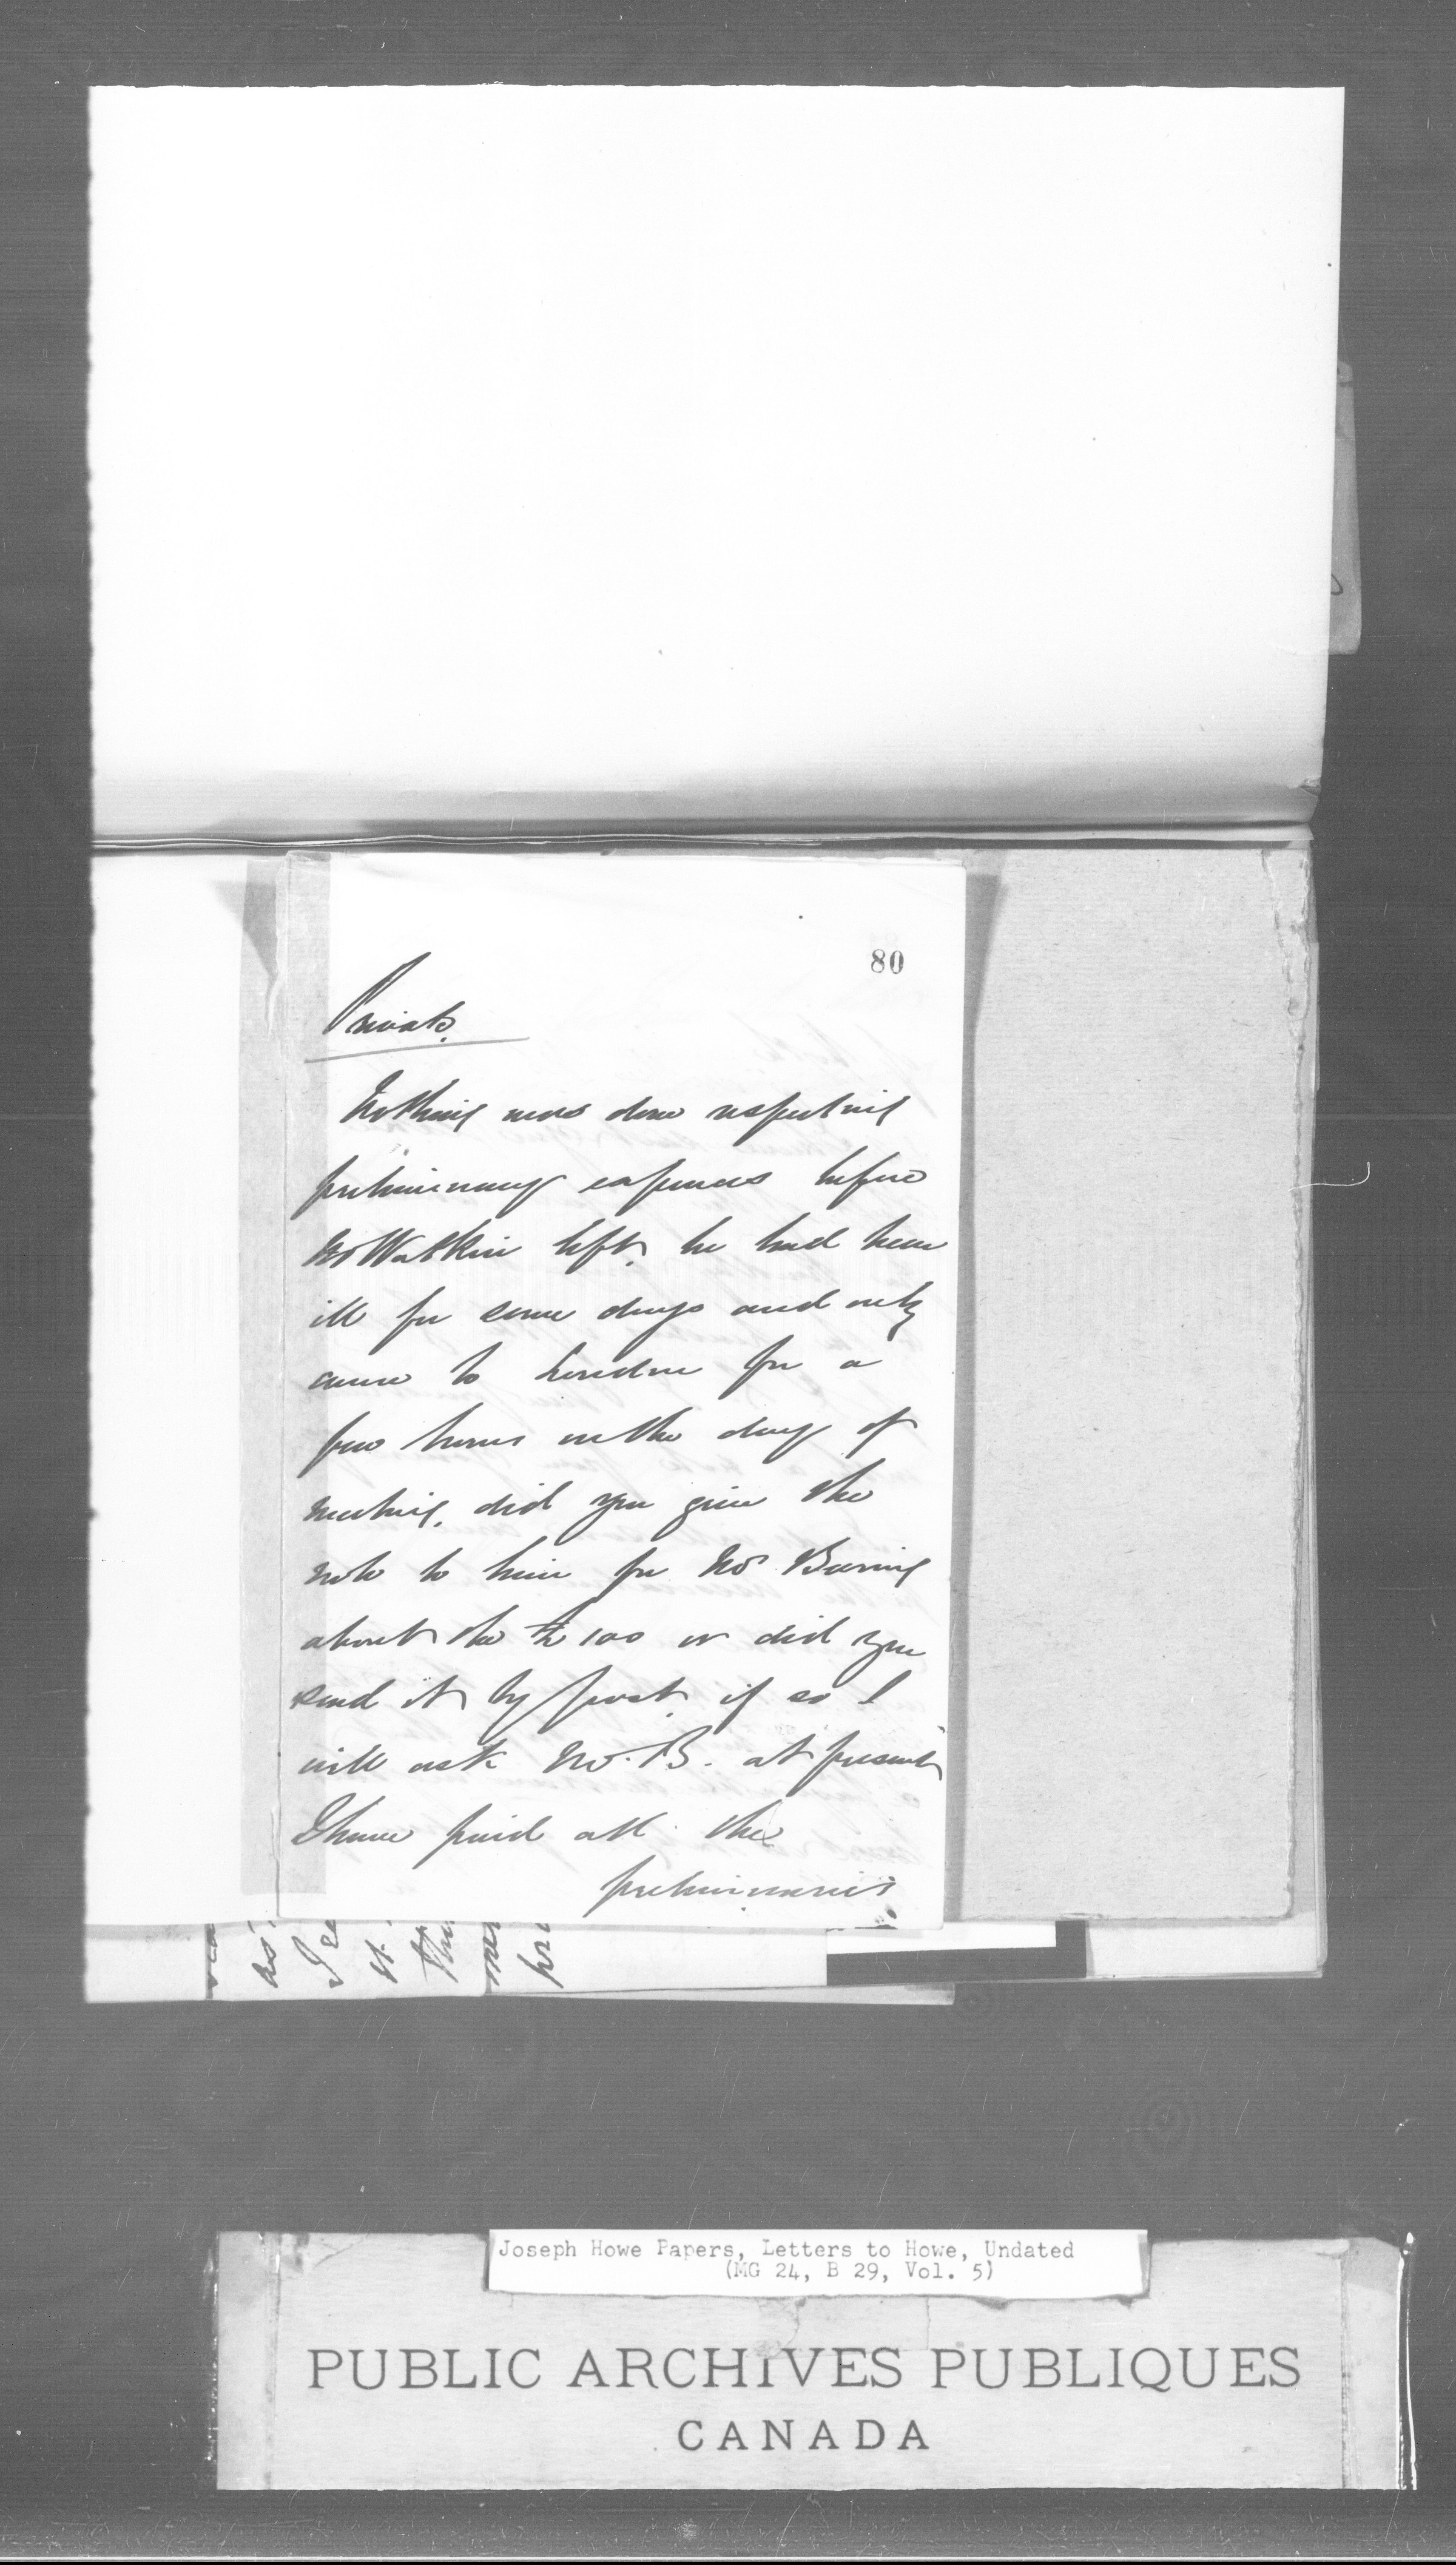 80
Private
Nothing was done respecting
preliminary expenses before
Mr Watkin left, he had been
ill for some days and only
came to London for a
few hours on the day of
meeting. did you give the
note to him for Mr Baring
about the £100 or did you
send it by post, if so I
will ask Mr. B. at present
I have paid all the
preliminaries
Joseph Howe Papers, Letters to Howe, Undated
(MG 24, B 29, Vol. 5)
PUBLIC ARCHIVES PUBLIQUES
CANADA